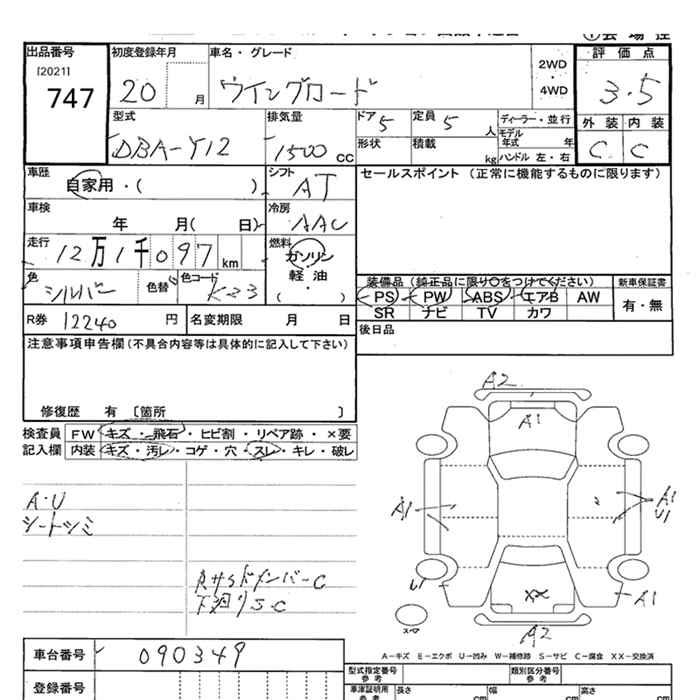 出品番号 初度登録年月 車名・グレード 評価点
[2021]
747 20 月 ウイングロード 2WD・4WD 3.5
型式 排気量 ドア 5 定員 5 人 ディーラー・並行 外装 内装
DBA-Y12 1500 CC 形状 積載 kg モデル年式 年 ハンドル 左・右 C C
車歴 自家用・( ) シフト AT セールスポイント (正常に機能するものに限ります)
車検 年 月( 日) 冷房 AAC
走行 12万1千097 km 燃料 ガソリン 軽油 ( ・ )
色 シルバー 色替 色コード K23
装備品 (純正品に限り○をつけてください) 新車保証書
PS PW ABS エアB AW 有・無
SR ナビ TV カワ
R券 12240 円 名変期限 月 日 後日品
注意事項申告欄(不具合内容等は具体的に記入して下さい)
修復歴 有 〔箇所 〕
検査員 FW キズ・飛石・ヒビ割・リペア跡・×要
記入欄 内装 キズ・汚レ・コゲ・穴・スレ・キレ・破レ
A・U
シートシミ
RサイドメンバーC
下廻りS・C
A2
A1
A1 A1
U1
U1 A1
XX
スペア A2
A-キズ E-エクボ U-凹み W-補修跡 S-サビ C-腐食 XX-交換済
車台番号 090349
登録番号
型式指定番号 参考 類別区分番号 参考
車庫証明用 参考 長さ cm 幅 cm 高さ cm